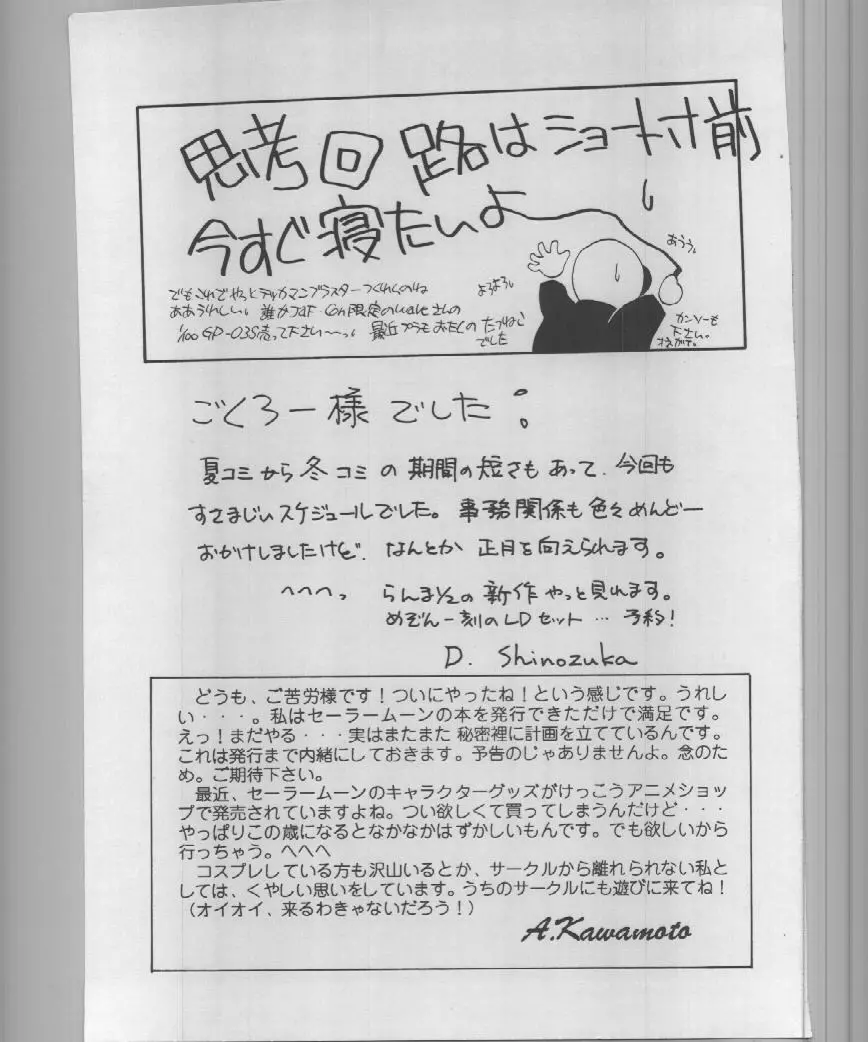 思考回路はショート寸前
今すぐ寝たいよ
おうう。
よろよろ。
でもこれでやっとテッカマンブラスターつくれんのね
ああうれしい。誰かJAF・CON限定のwaveさんの
1/100 GP-03S売って下さい〜っ。最近プラモおたくの
でした
カンソーも
下さい。
ごくろー様でした。
夏コミから冬コミの期間の短さもあって、今回も
すさまじいスケジュールでした。事務関係も色々めんどー
おかけしましたけど、なんとか正月を向えられます。
へへへっ らんま1/2の新作やっと見れます。
めぞん一刻のLDセット…予約!
D. Shinozuka
どうも、ご苦労様です!ついにやったね!という感じです。うれし
い・・・。私はセーラームーンの本を発行できただけで満足です。
えっ!まだやる・・・実はまたまた秘密裡に計画を立てているんです。
これは発行まで内緒にしておきます。予告のじゃありませんよ。念のた
め。ご期待下さい。
最近、セーラームーンのキャラクターグッズがけっこうアニメショッ
プで発売されていますよね。つい欲しくて買ってしまうんだけど・・・
やっぱりこの歳になるとなかなかはずかしいもんです。でも欲しいから
行っちゃう。へへへ
コスプレしている方も沢山いるとか、サークルから離れられない私と
しては、くやしい思いをしています。うちのサークルにも遊びに来てね!
(オイオイ、来るわきゃないだろう!)
A.Kawamoto